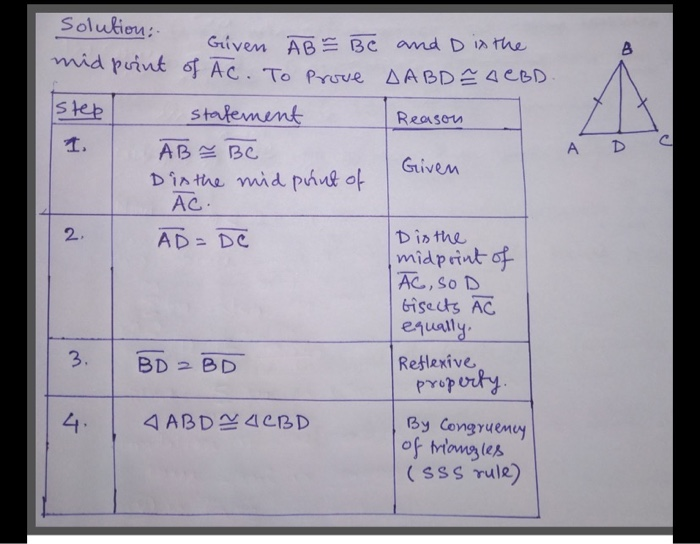 Solution:-
Given A̅B̅ ≅ B̅C̅ and D is the
mid point of A̅C̅. To Prove △ABD ≅ △CBD.
B
A D C
Step Statement Reason
1. A̅B̅ ≅ B̅C̅
D is the mid point of
A̅C̅.
Given
2. A̅D̅ = D̅C̅
D is the
midpoint of
A̅C̅, so D
bisects A̅C̅
equally.
3. B̅D̅ = B̅D̅
Reflexive
property.
4. △ABD ≅ △CBD
By Congruency
of triangles
(SSS rule)